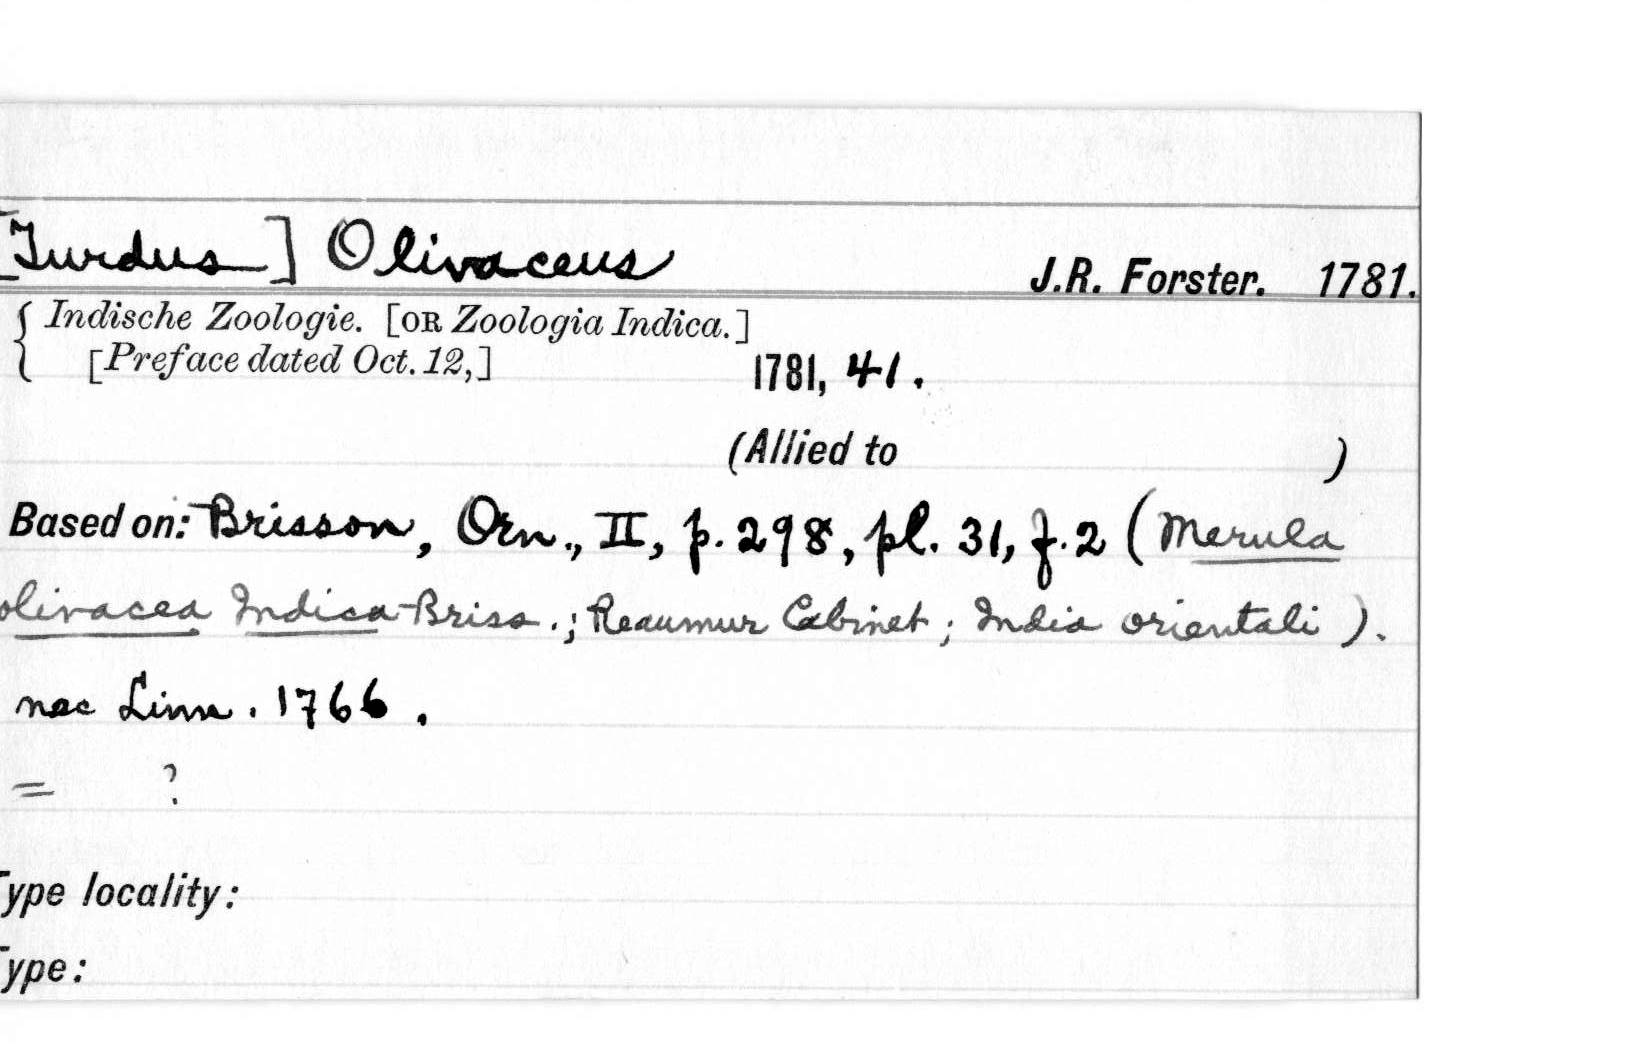 [Turdus] Olivaceus J.R. Forster. 1781.
{ Indische Zoologie. [OR Zoologia Indica.]
[Preface dated Oct. 12,] 1781, 41.
(Allied to )
Based on: Brisson, Orn., II, p. 298, pl. 31, f. 2 (Merula
olivacea Indica Briss.; Reaumur Cabinet; India orientali).
nec Linn. 1766.
= ?
Type locality:
Type: